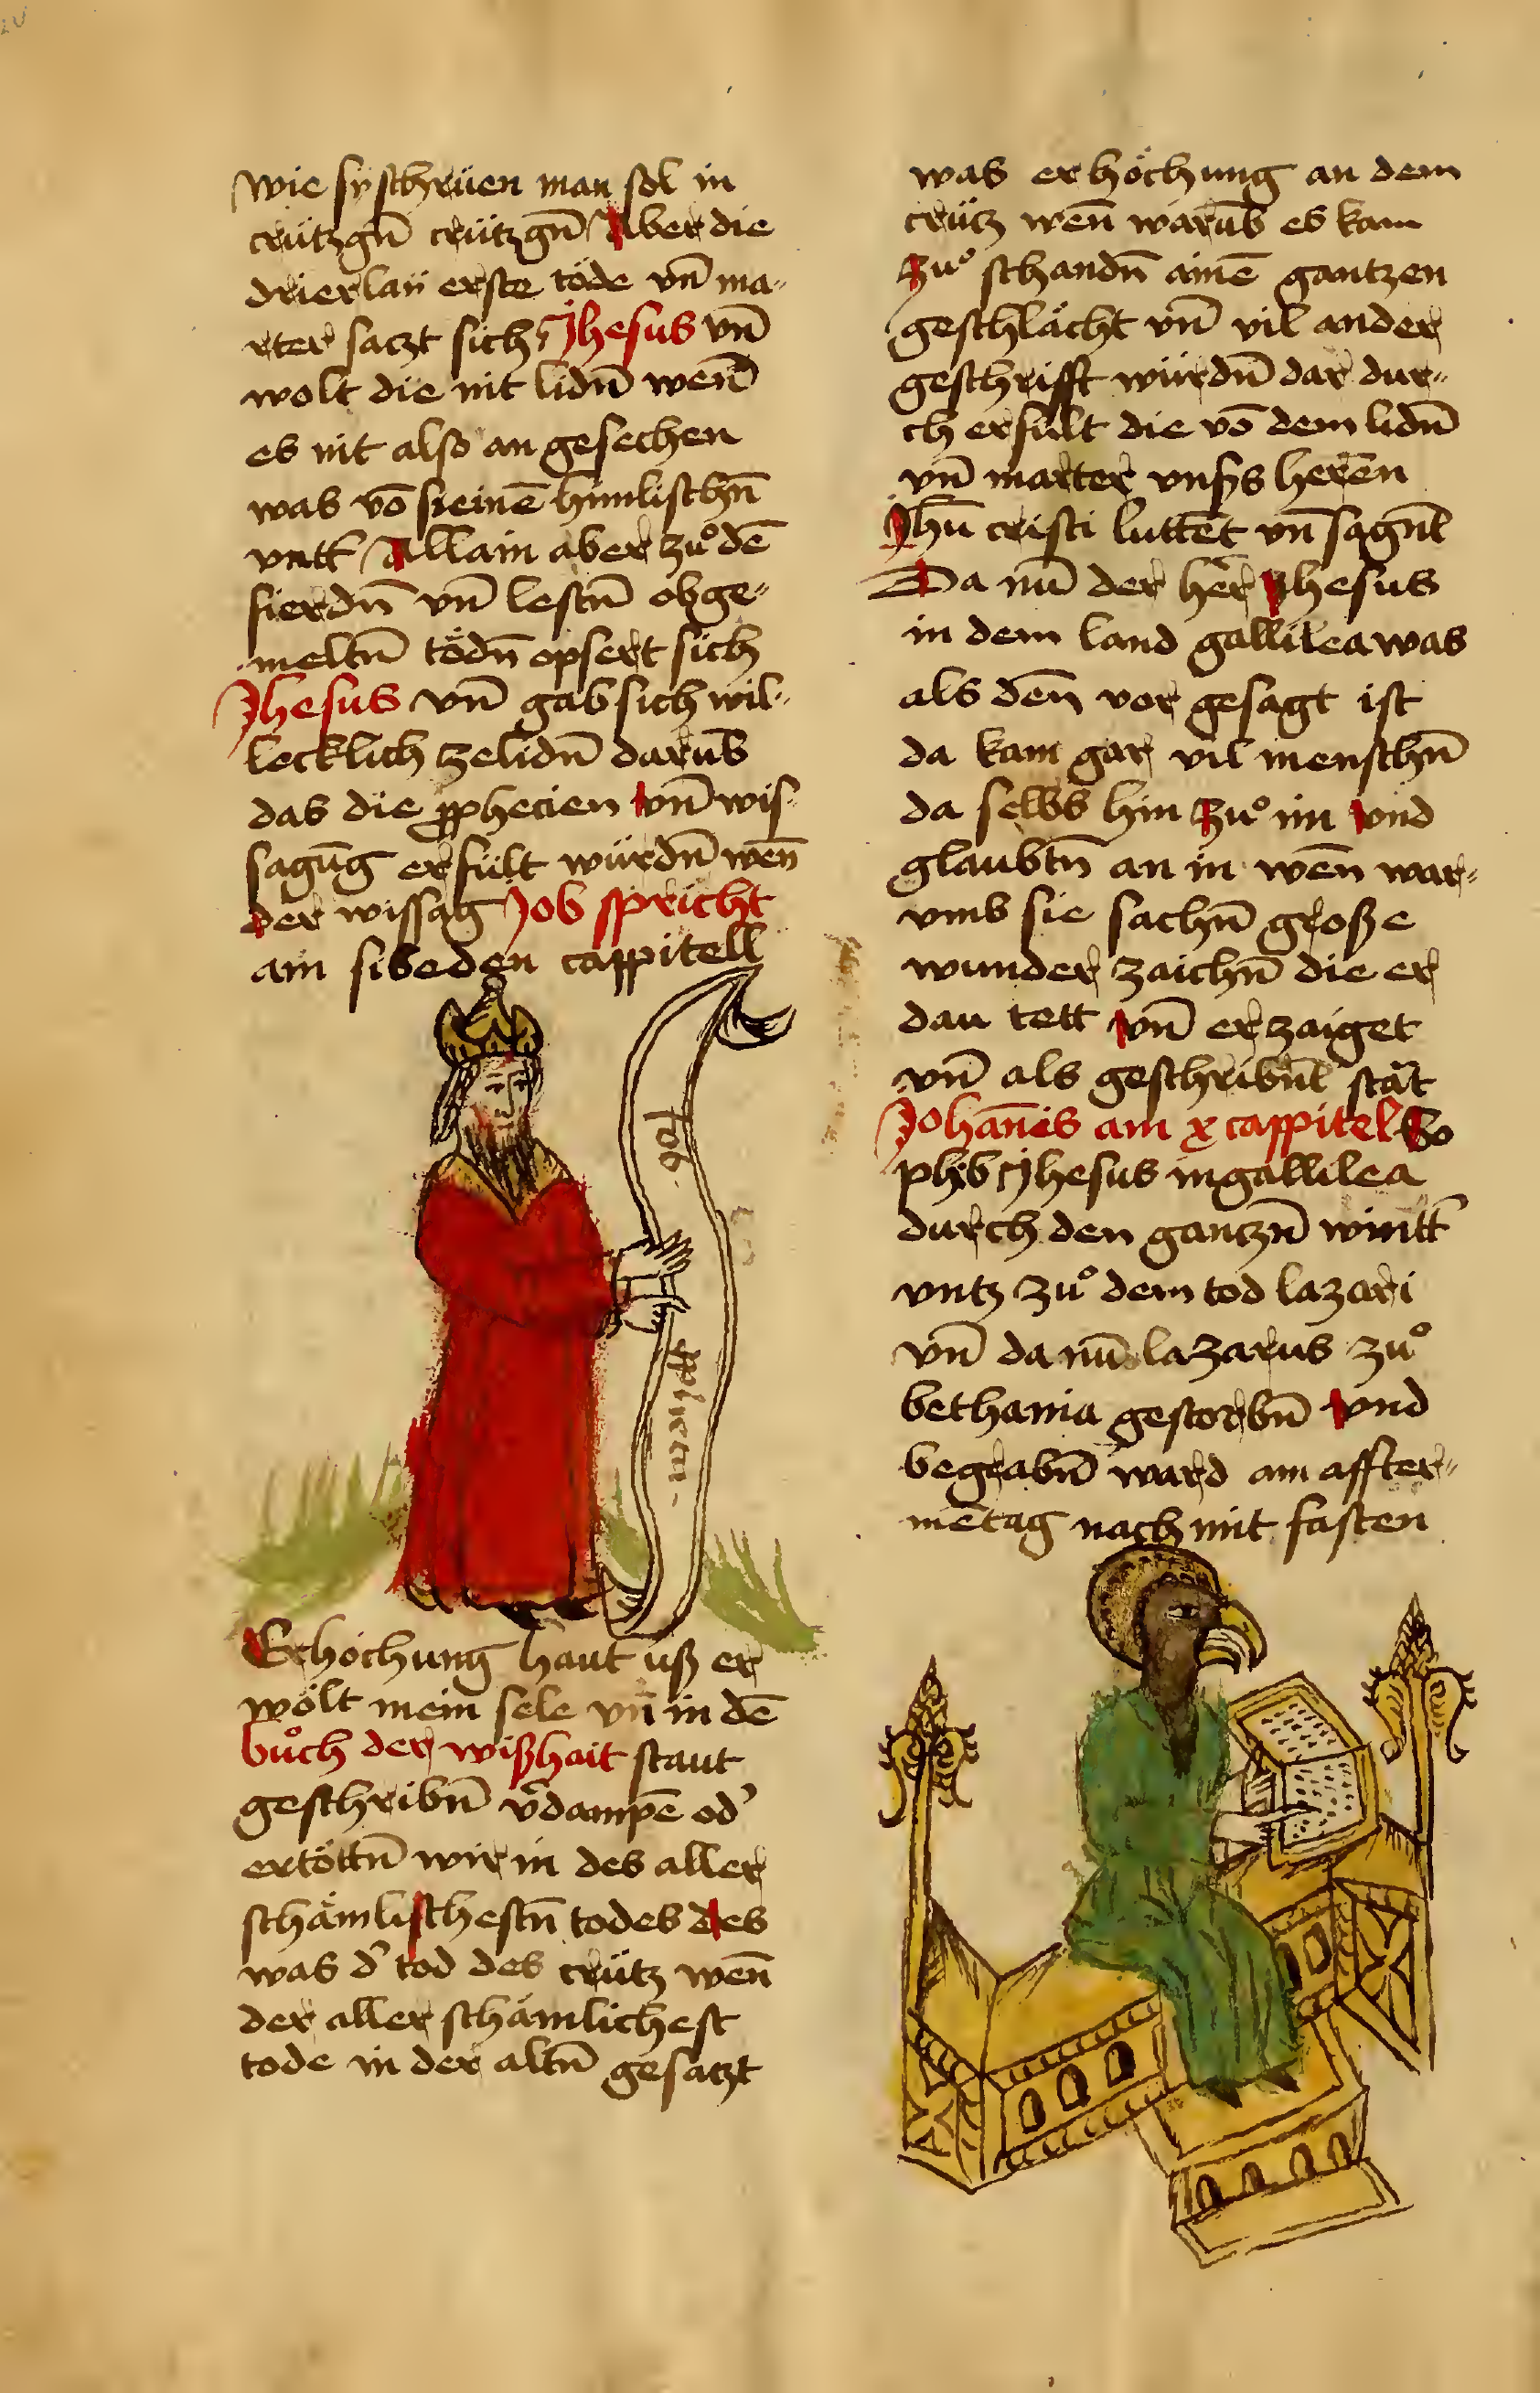 wie sÿ schrüen man sol in
crützgn̄ crützgn̄ Aber die
drierlaÿ erste töde vn̄ ma-
rter saczt sich Jhesus vn̄
wolt die nit lidn̄ wen̄
es nit also an gesechen
was vō sieinē himlischn̄
vatt' Allain aber zuͦ dē
fierdn̄ vn̄ lestn̄ obge-
meltn̄ tödn̄ opfert sich
Jhesus vn̄ gab sich wil-
lecklich zelidn̄ darūb
das die ꝓphecien vn̄ wis-
sagūg erfült würdn̄ wen̄
der wissag Job spricht
am sibeden cappitell
Job
Erhöchung haut uß er
wölt mein sele vn̄ in dē
buͦch der wißhait staut
geschribn̄ v'dampē od'
ertöttn̄ wir in des aller
schämlischestn̄ todes des
was d' tod des crütz wen̄
der aller schämlichest
tode in der altn̄ gesaczt
was erhöchung an dem
crütz wen̄ warūb es kam
zuͦ schandn̄ ainē gantzen
geschlächt vn̄ vil ander
geschrifft würdn̄ dar dur-
ch erfült die vō dem lidn̄
vn̄ marter vnsers heren
Jhū cristi luttēt vn̄ sagn̄t
Da nū der her Jhesus
in dem land gallilea was
als den̄ vor gesagt ist
da kam gar vil menschn̄
da selbs hin zuͦ im vnd
glaubtn̄ an in wen̄ war-
vmb sie sachn̄ große
wunder zaichn̄ die er
dau tett vn̄ erzaiget
vn̄ als geschribn̄ stāt
Johan̄es am x cappitel So
plyb Jhesus in gallilea
durch den gantzn̄ wintt'
vntz zuͦ dem tod lazari
vn̄ da nū lazarus zuͦ
bethania gestorbn̄ vnd
begrabn̄ ward am affter-
mētag nach mit fasten